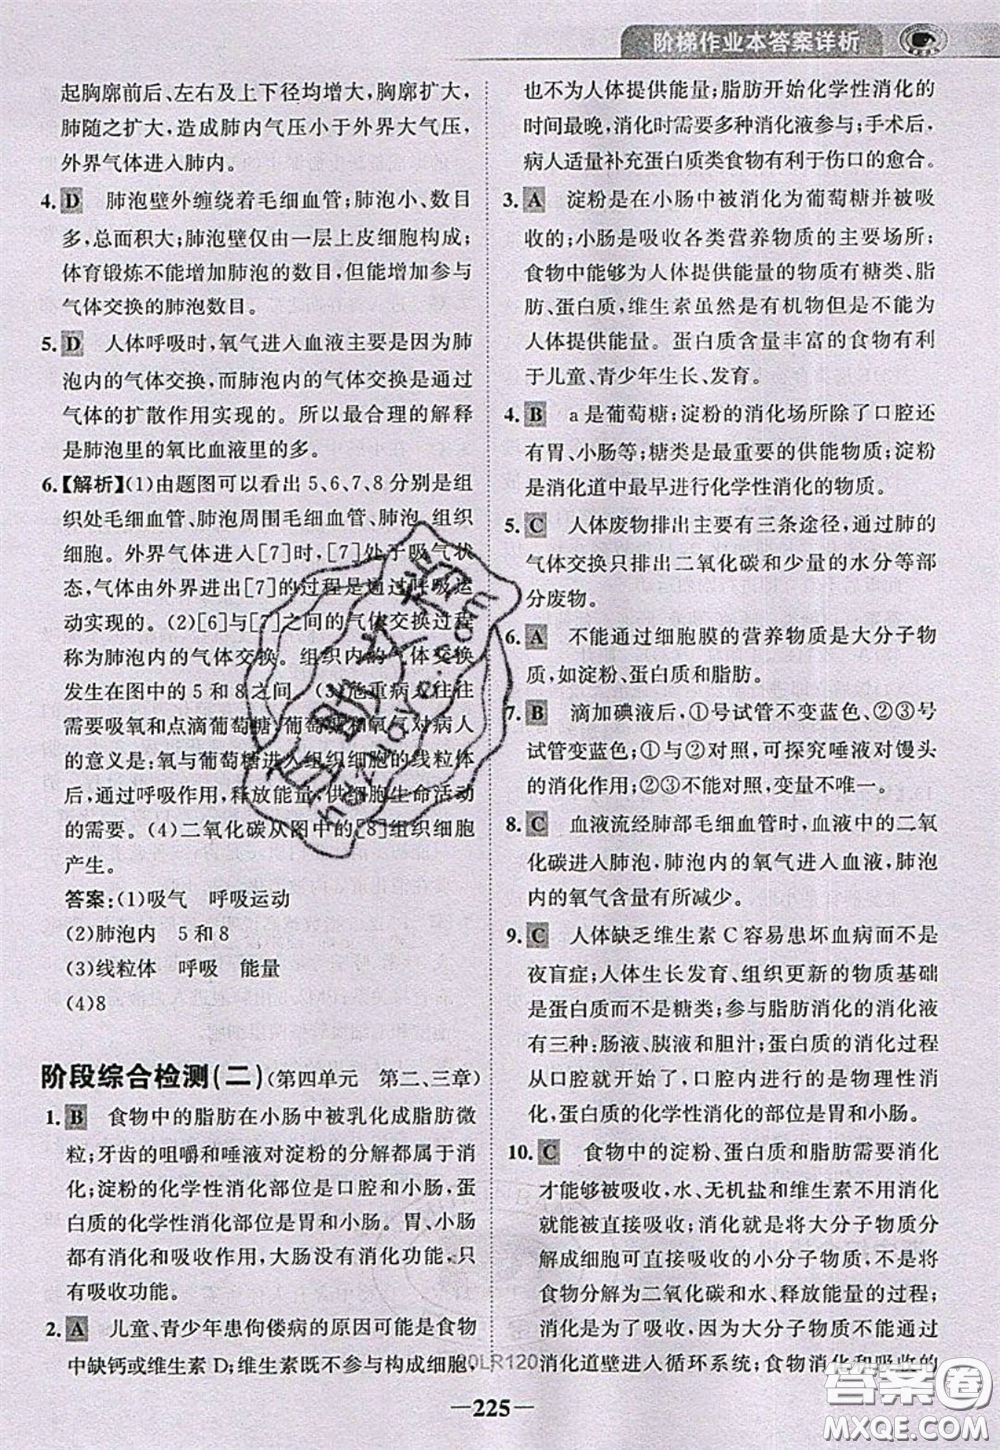 阶梯作业本答案详析
起胸廓前后、左右及上下径均增大,胸廓扩大,
肺随之扩大,造成肺内气压小于外界大气压,
外界气体进入肺内。
4. D 肺泡壁外缠绕着毛细血管;肺泡小、数目
多,总面积大;肺泡壁仅由一层上皮细胞构成;
体育锻炼不能增加肺泡的数目,但能增加参与
气体交换的肺泡数目。
5. D 人体呼吸时,氧气进入血液主要是因为肺
泡内的气体交换,而肺泡内的气体交换是通过
气体的扩散作用实现的。所以最合理的解释
是肺泡里的氧比血液里的多。
6.【解析】(1)由题图可以看出 5、6、7、8 分别是组
织处毛细血管、肺泡周围毛细血管、肺泡、组织
细胞。外界气体进入[7]时,[7]处于吸气状
态,气体由外界进出[7]的过程是通过呼吸运
动实现的。(2)[6]与[7]之间的气体交换过程
称为肺泡内的气体交换。组织内的气体交换
发生在图中的 5 和 8 之间。(3)危重病人往往
需要吸氧和点滴葡萄糖,葡萄糖和氧气对病人
的意义是:氧与葡萄糖进入组织细胞的线粒体
后,通过呼吸作用,释放能量,供细胞生命活动
的需要。(4)二氧化碳从图中的[8]组织细胞
产生。
答案:(1)吸气 呼吸运动
(2)肺泡内 5 和 8
(3)线粒体 呼吸 能量
(4)8
阶段综合检测(二)(第四单元 第二、三章)
1. B 食物中的脂肪在小肠中被乳化成脂肪微
粒;牙齿的咀嚼和唾液对淀粉的分解都属于消
化;淀粉的化学性消化部位是口腔和小肠,蛋
白质的化学性消化部位是胃和小肠。胃、小肠
都有消化和吸收作用,大肠没有消化功能,只
有吸收功能。
2. A 儿童、青少年患佝偻病的原因可能是食物
中缺钙或维生素 D;维生素既不参与构成细胞,
也不为人体提供能量;脂肪开始化学性消化的
时间最晚,消化时需要多种消化液参与;手术后,
病人适量补充蛋白质类食物有利于伤口的愈合。
3. A 淀粉是在小肠中被消化为葡萄糖并被吸
收的;小肠是吸收各类营养物质的主要场所;
食物中能够为人体提供能量的物质有糖类、脂
肪、蛋白质,维生素虽然是有机物但是不能为
人体提供能量。蛋白质含量丰富的食物有利
于儿童、青少年生长、发育。
4. B a 是葡萄糖;淀粉的消化场所除了口腔还
有胃、小肠等;糖类是最重要的供能物质,淀粉
是消化道中最早进行化学性消化的物质。
5. C 人体废物排出主要有三条途径,通过肺的
气体交换只排出二氧化碳和少量的水分等部
分废物。
6. A 不能通过细胞膜的营养物质是大分子物
质,如淀粉、蛋白质和脂肪。
7. B 滴加碘液后,①号试管不变蓝色、②③号
试管变蓝色;①与②对照,可探究唾液对馒头
的消化作用;②③不能对照,变量不唯一。
8. C 血液流经肺部毛细血管时,血液中的二氧
化碳进入肺泡,肺泡内的氧气进入血液,肺泡
内的氧气含量有所减少。
9. C 人体缺乏维生素 C 容易患坏血病而不是
夜盲症;人体生长发育、组织更新的物质基础
是蛋白质而不是糖类;参与脂肪消化的消化液
有三种:肠液、胰液和胆汁;蛋白质的消化过程
从胃开始,口腔内进行的是蛋白质的物理性消
化,蛋白质的化学性消化的部位是胃和小肠。
10. C 食物中的淀粉、蛋白质和脂肪需要消化
才能够被吸收,水、无机盐和维生素不用消化
就能被直接吸收;消化就是将大分子物质分
解成细胞可直接吸收的小分子物质,不是将
食物分解为二氧化碳和水、释放能量;消化的
主要场所是小肠;吸收是指营养物质通过
消化道壁进入循环系统;食物消化和吸收的
20LR120
225
答案圈
MXQE.COM